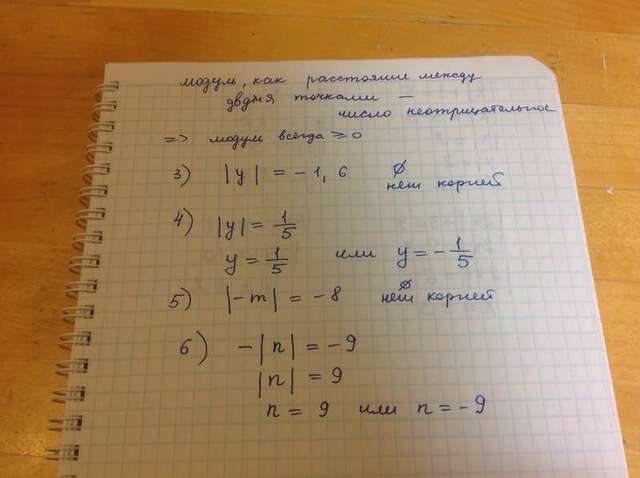 модуль, как расстояние между
двумя точками —
число неотрицательное
=> модуль всегда ≥ 0
3) |y| = -1,6 ∅ нет корней
4) |y| = 1/5
y = 1/5 или y = -1/5
5) |-m| = -8 ∅ нет корней
6) -|n| = -9
|n| = 9
n = 9 или n = -9